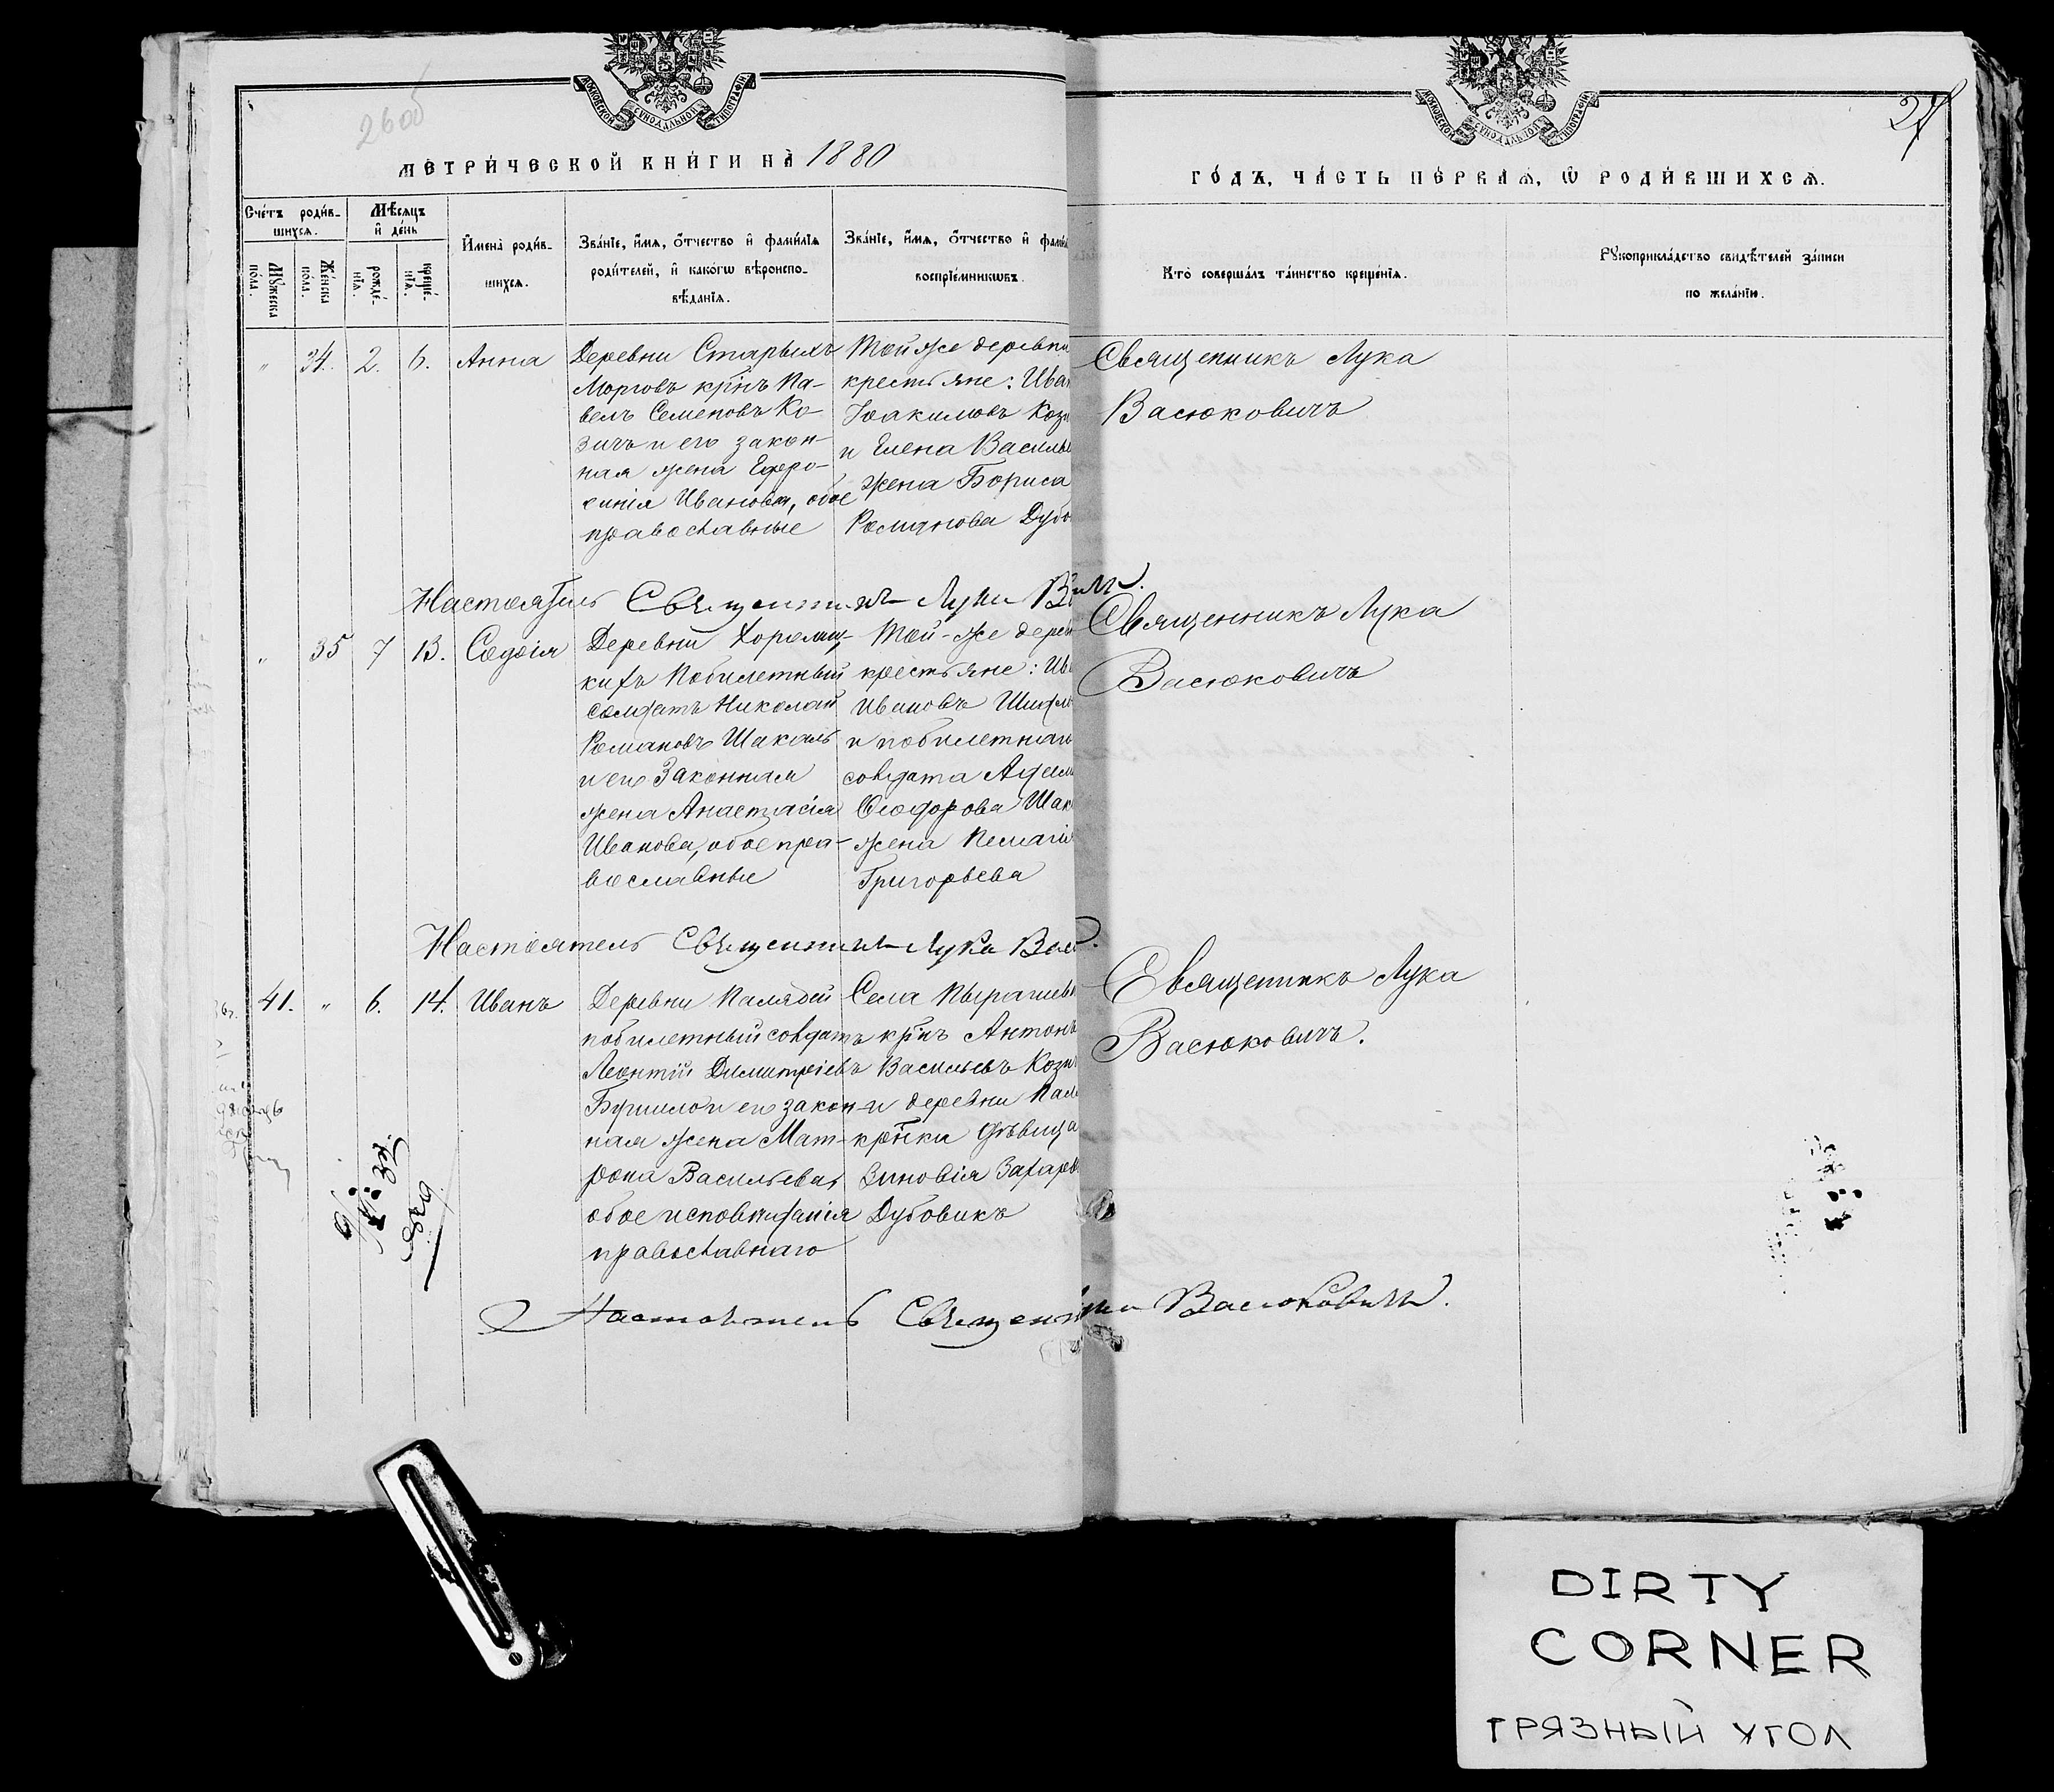 260б
27
МОСКОВСКОЙ СѴНОДАЛЬНОЙ ТИПОГРАФІИ
МОСКОВСКОЙ СѴНОДАЛЬНОЙ ТИПОГРАФІИ
МЕТРИ́ЧЕСКОЙ КНИ́ГИ НА̀ 1880
ГО́ДЪ, ЧА́СТЬ ПЕ́РВАѦ, Ѡ РОДИ́ВШИХСѦ.
Сче́тъ роди́в-
шихсѧ.
Мѣ́сѧцъ
и҆ де́нь
Мꙋ́жеска
по́ла.
Же́нска
по́ла.
рожде́-
нїѧ.
креще́-
нїѧ.
И҆мена̀ роди́в-
шихсѧ.
Зва́нїе, и҆́мѧ, ѻ҆́тчество и҆ фами́лїѧ
роди́телей, и҆ како́гѡ вѣроиспо-
вѣ́данїѧ.
Зва́нїе, и҆́мѧ, ѻ҆́тчество и҆ фами́
воспрїе́мникѡвъ.
Кто̀ соверша́лъ та́инство креще́нїѧ.
Рꙋкоприкла́дство свидѣ́телей за́писи
по жела́нїю.
" 34. 2. 6. Анна
Деревни Старыхъ
Морговъ кр̃нъ Па-
велъ Семеновъ Ко-
зичъ и его закон-
ная жена Евфро-
синія Иванова, обое
православные
Той же деревни
крестьяне: Иван
Іоакимовъ Кози
и Елена Василье
жена Бориса
Романова Дубо
Священникъ Лука
Васюковичъ
Настоятель Священникъ Лука
" 35 7 13. Софія
Деревни
побилетный
солдатъ Николай
Романовъ Шакаль
и его законная
жена Анастасія
Иванова, обое пра-
вославные
Той-же дерев
крестьяне: Ив
Ивановъ
и побилетнаго
солдата
Ѳеодорова Шак
жена Пелагія
Григорьева
Священникъ Лука
Васюковичъ
Настоятель Священникъ Лука Вас
41. " 6. 14. Иванъ
Деревни
побилетный солдатъ
Леонтій Димитріевъ
и его закон-
ная жена Мат-
рона Васильева,
обое исповѣданія
православнаго
Села Пырашев
кр̃нъ Антонъ
Васильевъ Кози
и деревни Пал
кр̃нки дѣвица
Зиновія Захаров
Дубовикъ
Священникъ Лука
Васюковичъ.
Настоятель Священ Васюковичъ.
DIRTY
CORNER
ГРЯЗНЫЙ УГОЛ